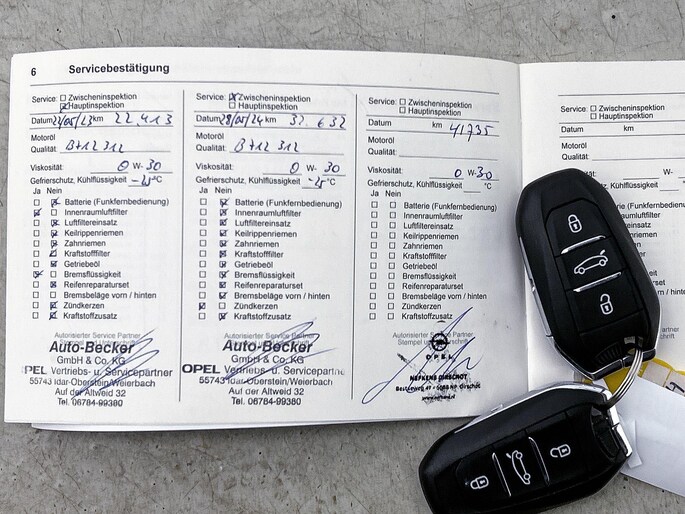 6 Servicebestätigung
Service: Zwischeninspektion
Hauptinspektion
Datum 22/05/23 km 22.413
Motoröl
Qualität: B712 312
Viskosität: 0 W- 30
Gefrierschutz, Kühlflüssigkeit -25 °C
Ja Nein
Batterie (Funkfernbedienung)
Innenraumluftfilter
Luftfiltereinsatz
Keilrippenriemen
Zahnriemen
Kraftstofffilter
Getriebeöl
Bremsflüssigkeit
Reifenreparaturset
Bremsbeläge vorn / hinten
Zündkerzen
Kraftstoffzusatz
Autorisierter Service Partner
Auto-Becker
GmbH & Co. KG
OPEL Vertriebs- u. Servicepartner
55743 Idar-Oberstein/Weierbach
Auf der Altweid 32
Tel. 06784-99380
Service: Zwischeninspektion
Hauptinspektion
Datum 28/05/24 km 32.632
Motoröl
Qualität: B712 312
Viskosität: 0 W- 30
Gefrierschutz, Kühlflüssigkeit -25 °C
Ja Nein
Batterie (Funkfernbedienung)
Innenraumluftfilter
Luftfiltereinsatz
Keilrippenriemen
Zahnriemen
Kraftstofffilter
Getriebeöl
Bremsflüssigkeit
Reifenreparaturset
Bremsbeläge vorn / hinten
Zündkerzen
Kraftstoffzusatz
Autorisierter Service Partner
Auto-Becker
GmbH & Co. KG
OPEL Vertriebs- u. Servicepartner
55743 Idar-Oberstein/Weierbach
Auf der Altweid 32
Tel. 06784-99380
Service: Zwischeninspektion
Hauptinspektion
Datum km 41735
Motoröl
Qualität:
Viskosität: 0 W- 30
Gefrierschutz, Kühlflüssigkeit °C
Ja Nein
Batterie (Funkfernbedienung)
Innenraumluftfilter
Luftfiltereinsatz
Keilrippenriemen
Zahnriemen
Kraftstofffilter
Getriebeöl
Bremsflüssigkeit
Reifenreparaturset
Bremsbeläge vorn / hinten
Zündkerzen
Kraftstoffzusatz
Autorisierter Service Partner
Stempel
OPEL
NEFKENS OIRSCHOT
Service: Zwischeninspektion
Hauptinspektion
Datum km
Motoröl
Qualität:
W-